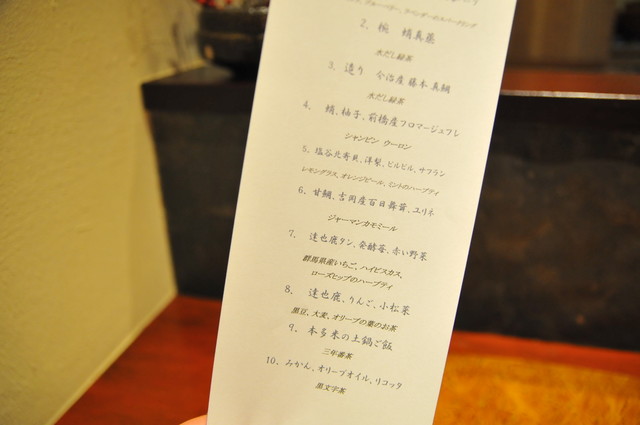 ブルーベリー、ラベンダーのスパークリング
2、椀　蛸真薯
水だし緑茶
3、造り　今治産藤本真鯛
水だし緑茶
4、蛸、柚子、前橋産フロマージュフレ
シャンピン ウーロン
5、塩谷北寄貝、洋梨、ピルピル、サフラン
レモングラス、オレンジピール、ミントのハーブティ
6、甘鯛、吉岡産百日舞茸、ユリネ
ジャーマンカモミール
7、達也鹿タン、発酵苺、赤い野菜
群馬県産いちご、ハイビスカス、
ローズヒップのハーブティ
8、達也鹿、りんご、小松菜
黒豆、大麦、オリーブの葉のお茶
9、本多米の土鍋ご飯
三年番茶
10、みかん、オリーブオイル、リコッタ
黒文字茶